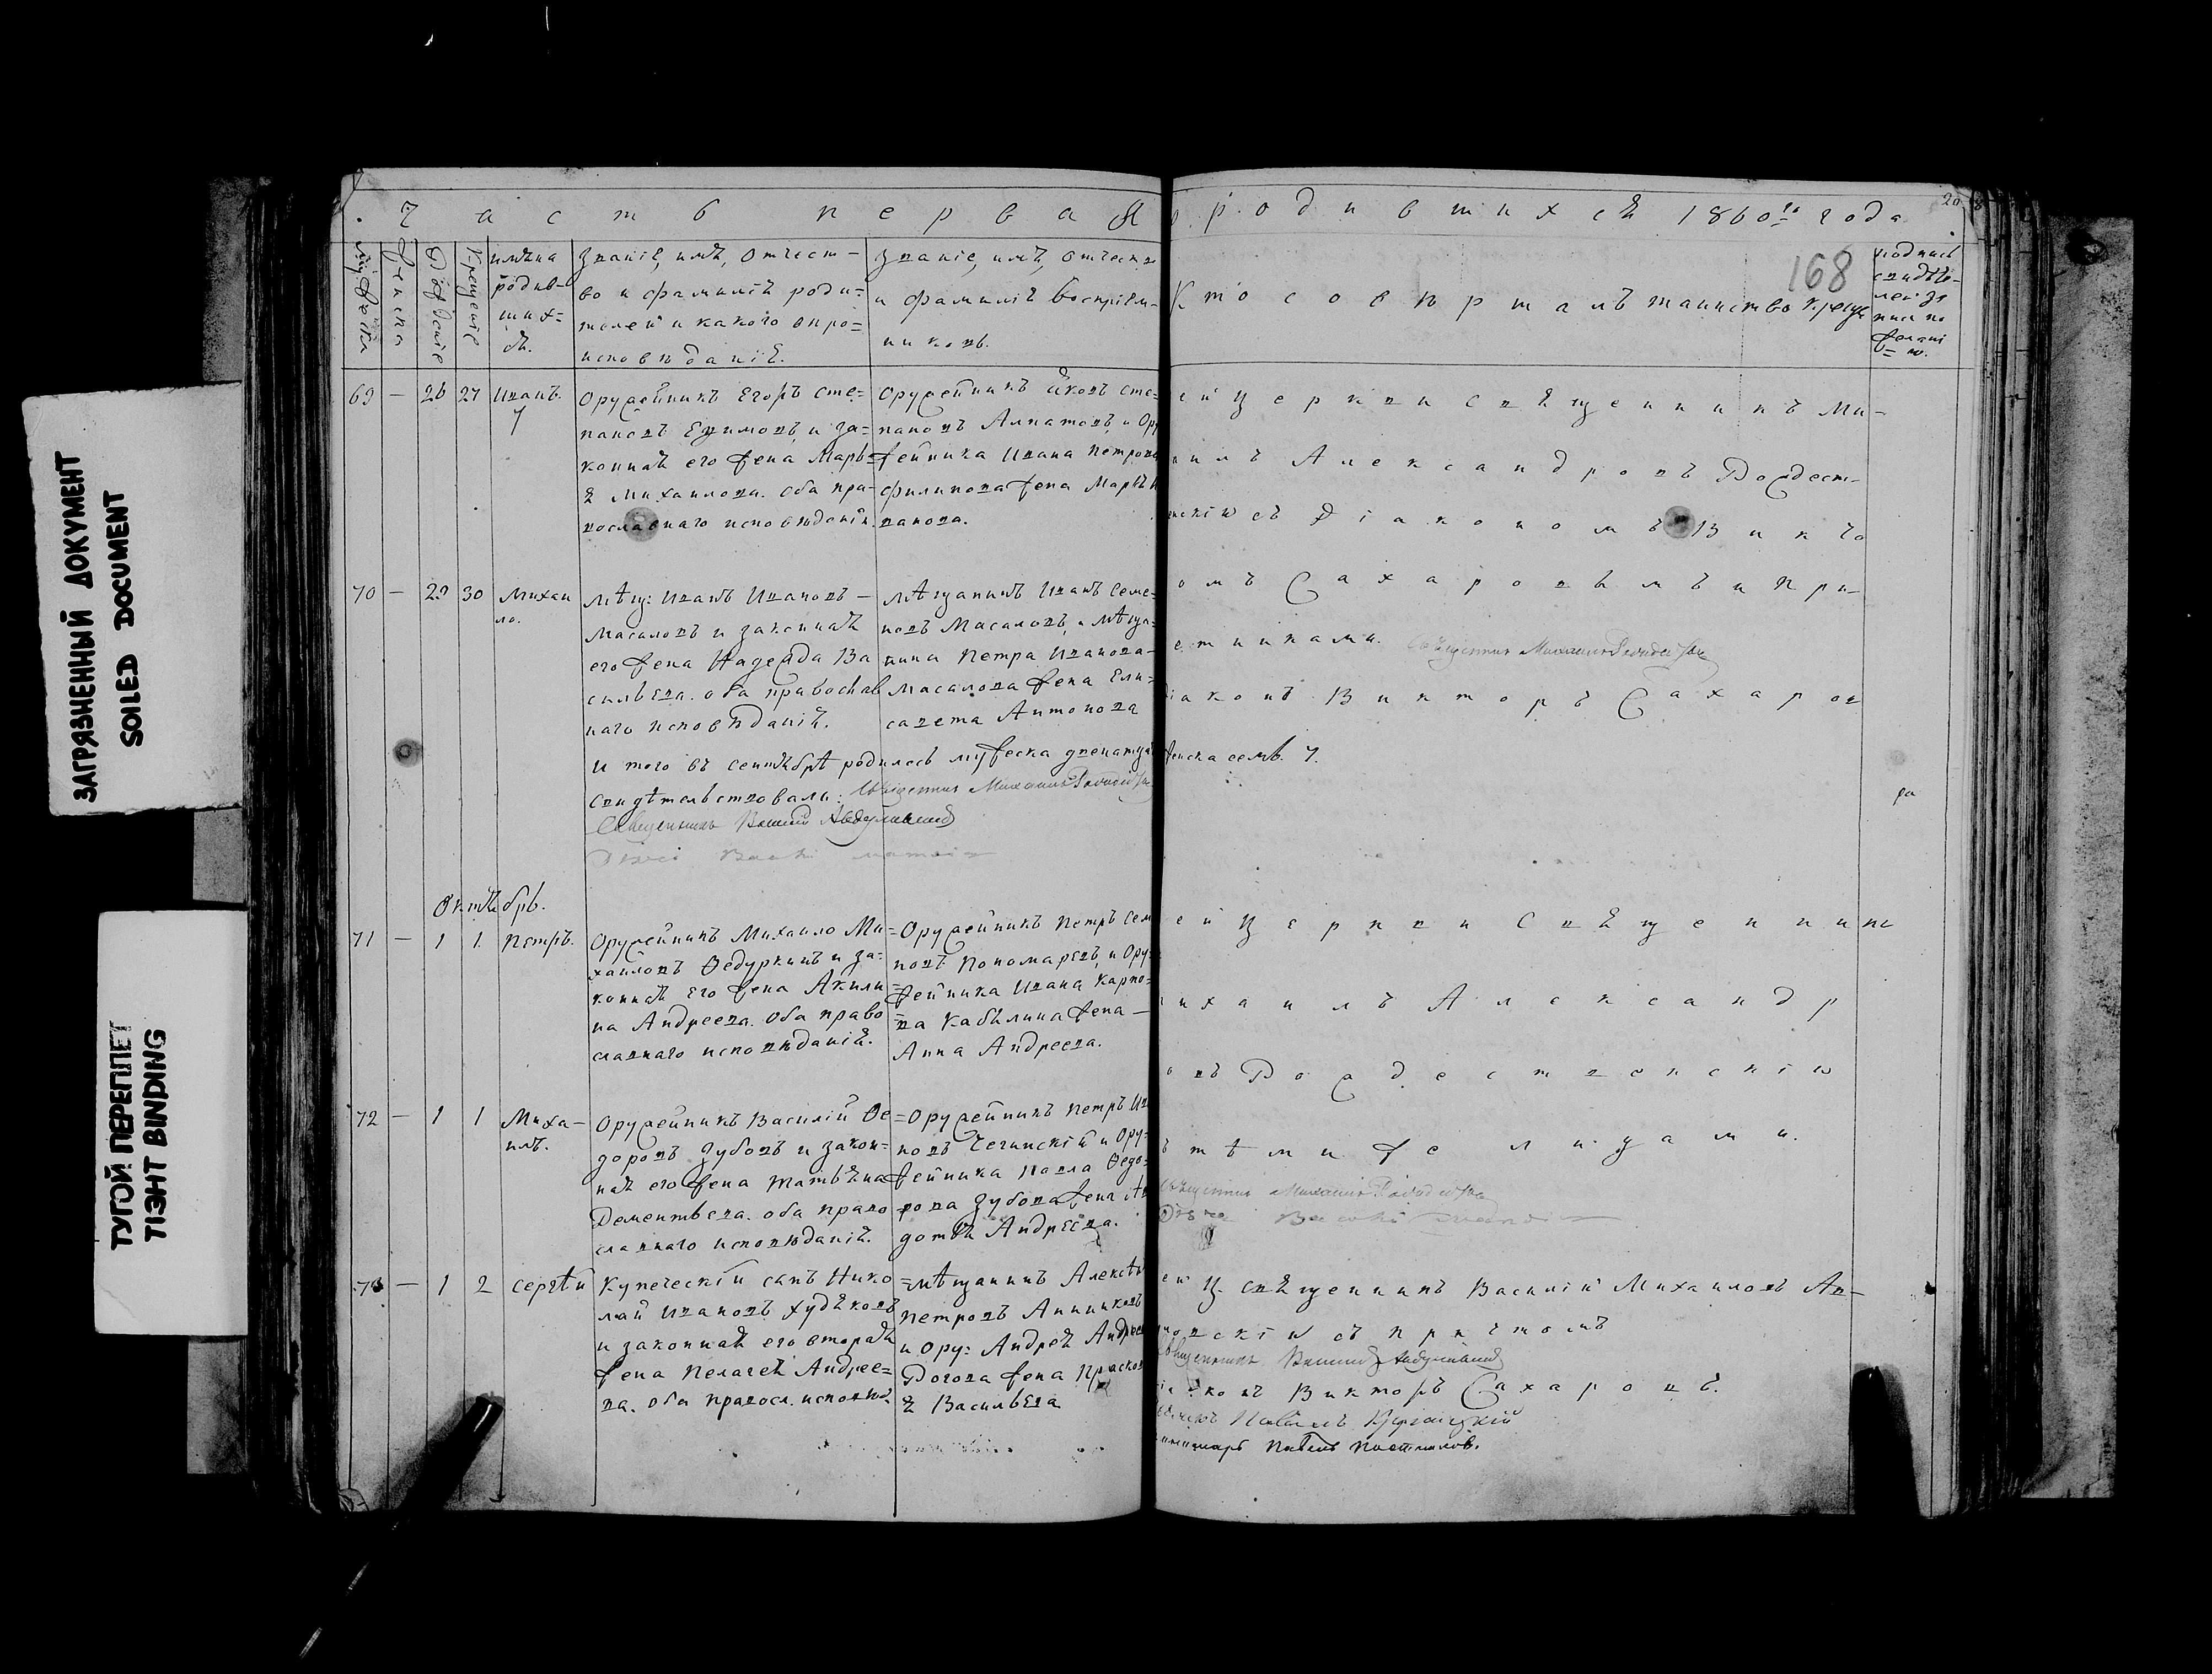 ЗАГРЯЗНЕННЫЙ ДОКУМЕНТ
SOILED DOCUMENT
ТУГОЙ ПЕРЕПЛЕТ
TIЭHT BINDING
Часть первая
о родившихся 1860го года
20
168
мужеска
женска
Рожденіе
Крещеніе
имѣна
родив-
ших=
ся.
Званіе, имя, отчест-
во и фамилія роди=
телей и какого вѣро=
исповѣданія.
Званіе, имя, отчество
и фамилія Воспріем-
никовъ.
Кто совершалъ таинство Креще
69 — 26 27 Иванъ.
Оружейникъ Егоръ Сте=
пановъ Ефимовъ, и за=
конная его жена Марь=
я Михаилова. оба пра-
вославнаго исповѣданія.
Оружейникъ Яковъ Сте=
пановъ Алпатовъ, и Ору
жейника Ивана Петрова
Филипова жена Марья И
ванова.
ей церкви Священникъ Ми-
аилъ Александровъ Рождест-
енскій съ Діакономъ Викто
70 — 29 30 Михаи
ло.
Мѣщ: Иванъ Ивановъ —
Масаловъ и законная
его жена Надежда Ва
сильева. оба православ
наго исповѣданія.
Мѣщанинъ Иванъ Семе=
новъ Масаловъ, и Мѣща=
нина Петра Иванова-
Масалова жена Ели=
савета Антонова
омъ Сахаровымъ и При-
етниками. Священникъ Михаилъ Рождественскій
іаконъ Викторъ Сахаров
И того въ сентябрѣ родилось мужеска двенатца
женска семь. 7.
Свидѣтельствовали: Священникъ Михаилъ Рождественскій
Священникъ Василій
Октябрь.
71 — 1 1 Петръ.
Оружейникъ Михаило Ми=
хаиловъ Ѳедуркинъ и за=
конная Его жена Акили=
на Андреева. Оба право
славнаго исповѣданія.
Оружейникъ Петръ Сем
новъ Пономаревъ, и Ору=
жейника Ивана Карпо=
ва Кабылина жена —
Анна Андреева.
ей Церкви Священник
ихаилъ Александр
овъ Рождественскій
72 — 1 1 Миха-
илъ.
Оружейникъ Василій Ѳе=
доровъ Зубовъ и закон=
ная его жена Татьяна
Дементьева. оба право
славнаго исповѣданія.
Оружейникъ Петръ Ив
новъ Чегинскій и Ору=
жейника Павла Ѳедо=
рова Зубова жена Ав
дотья Андреева.
ъ тѣми же лицами.
Священникъ Михаилъ Рождественскій
73 — 1 2 Сергѣй
Купеческій сынъ Нико
лай Ивановъ Худяковъ
и законная его вторая
жена Пелагея Андрее=
ва. оба правосл. исповѣд.
=Мѣщанинъ Алексѣй
Петровъ Анниковъ
и Ору: Андрея Андрее
Рогова жена Прасков
я Васильева
ей Ц. Священникъ Василій Михаиловъ Ав-
съ причтомъ
Священникъ Василій
іаконъ Викторъ Сахаровъ.
Павелъ
Пономарь Павелъ Постниковъ.